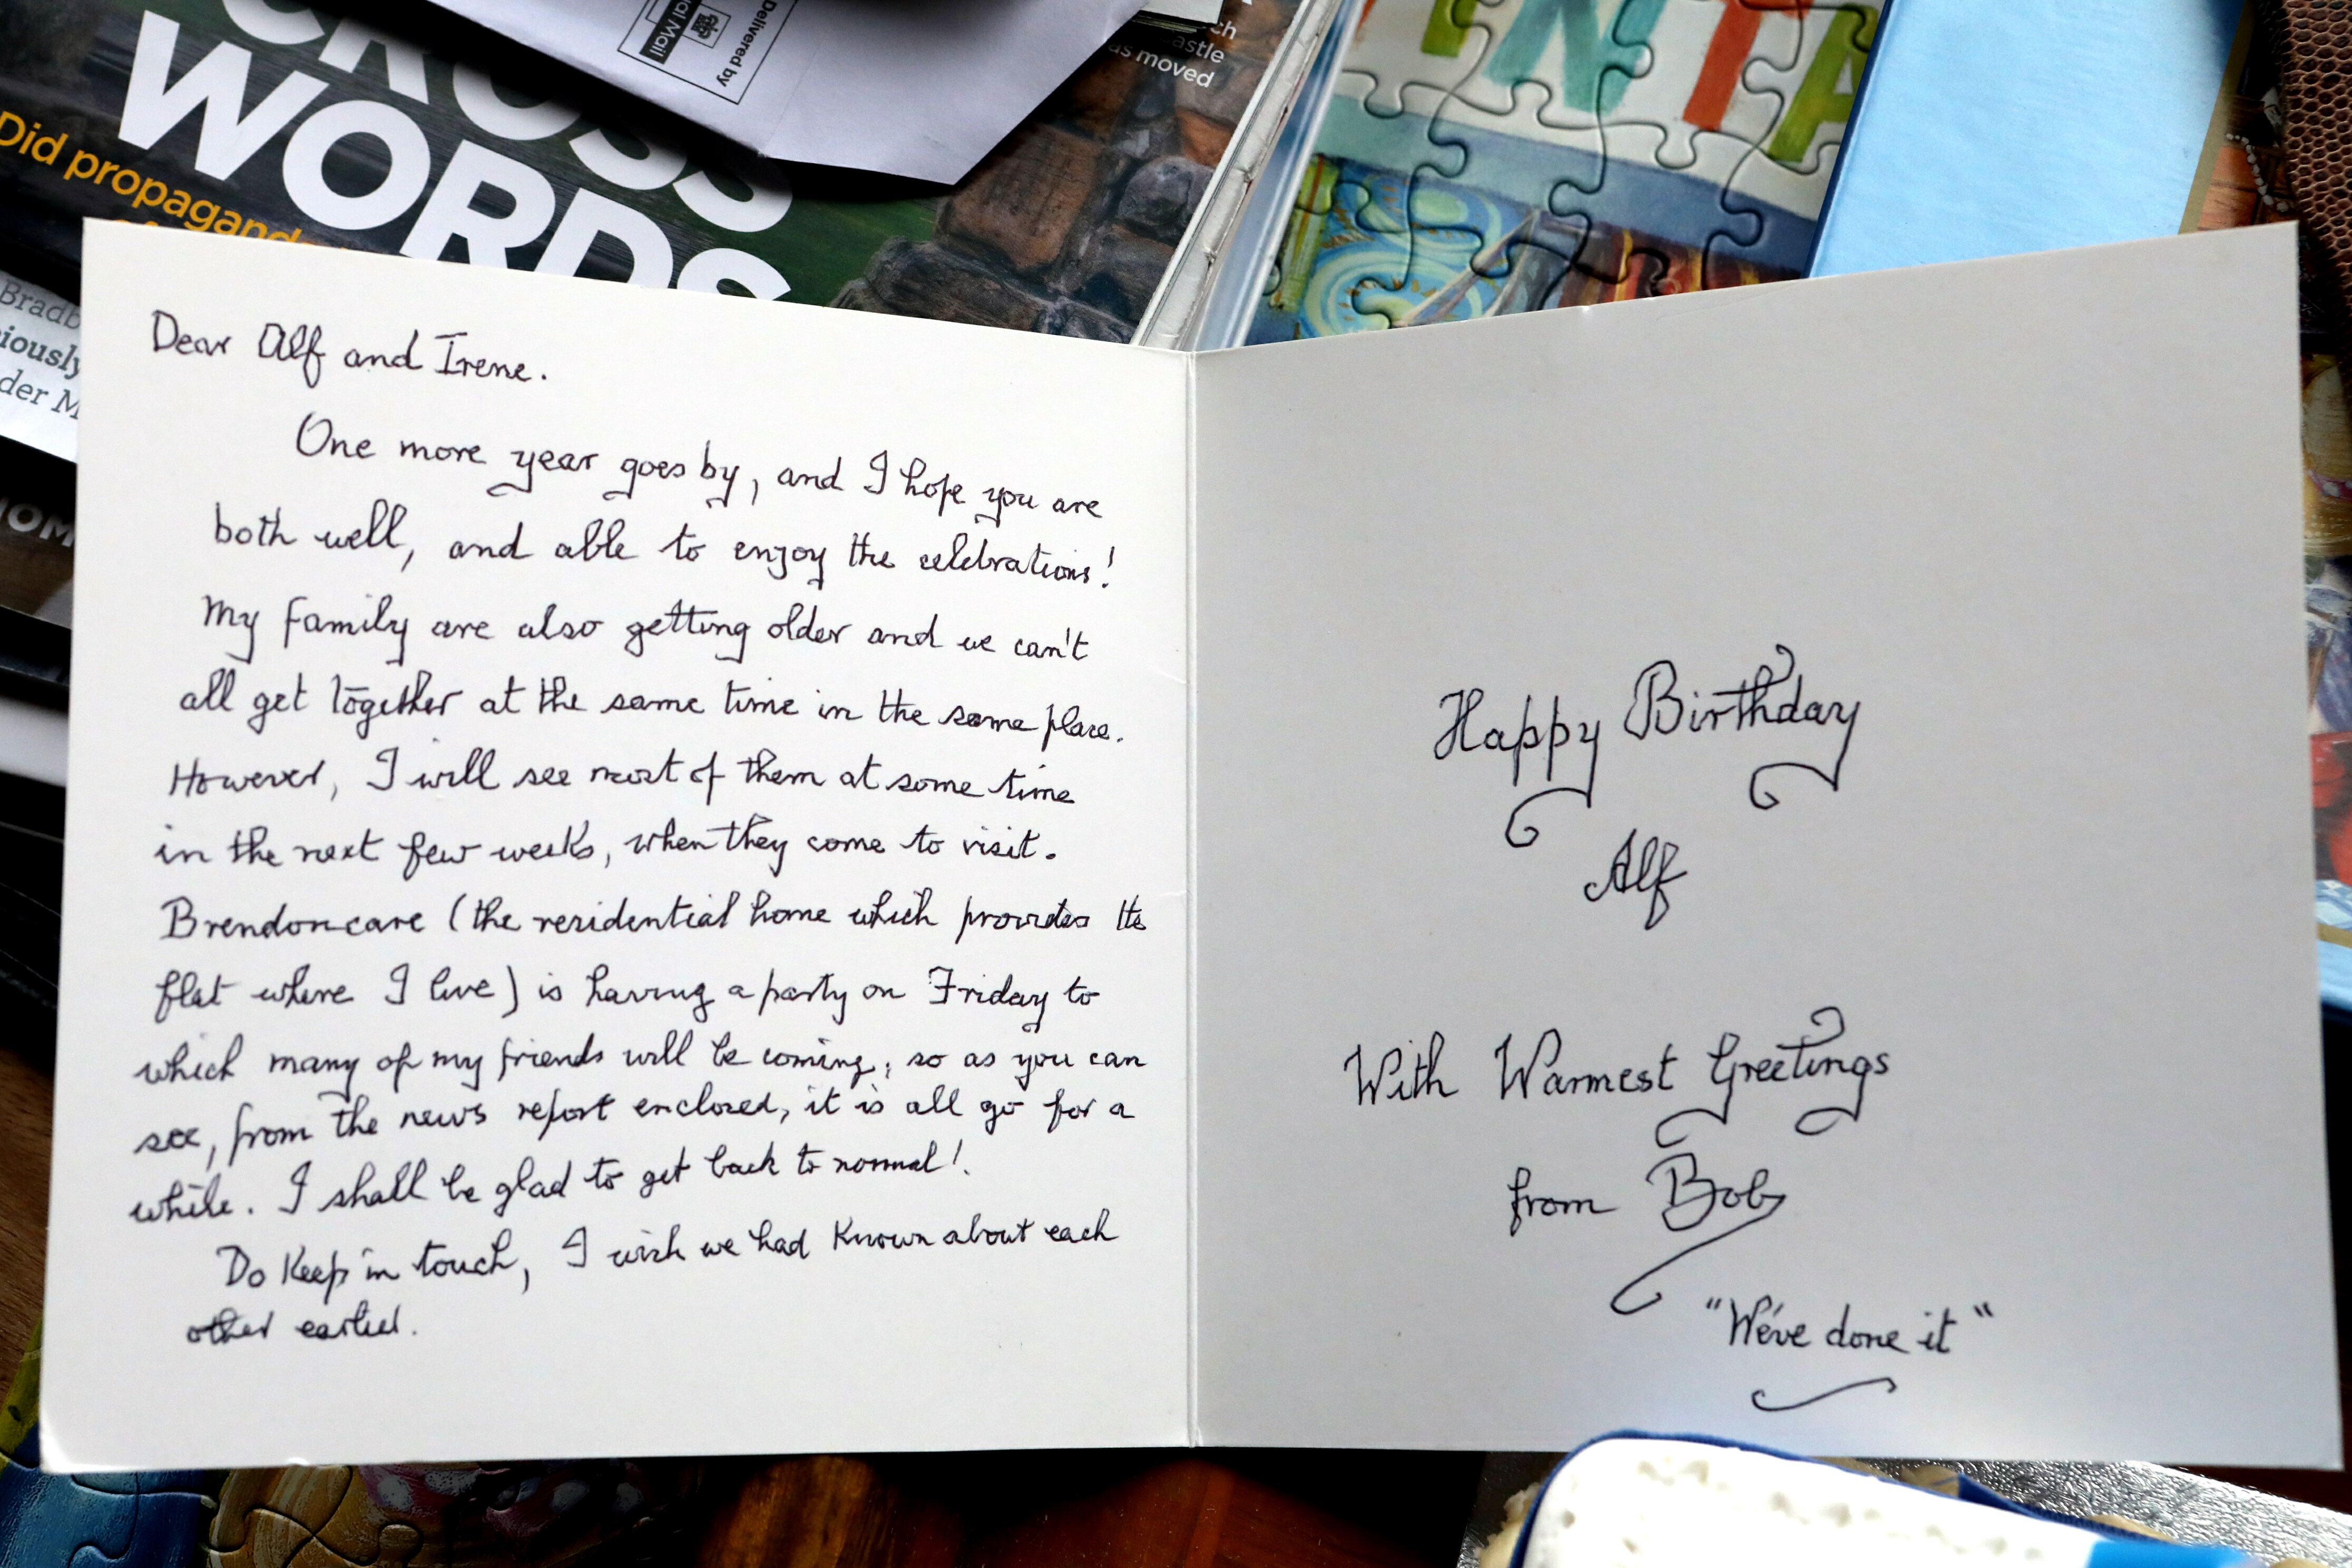 CROSS
WORDS
Did propaganda
Bradb
iously
der M
OM
Delivered by
al Mail
ch
astle
as moved
NTA
Dear Alf and Irene.
One more year goes by, and I hope you are
both well, and able to enjoy the celebrations!
My family are also getting older and we can't
all get together at the same time in the same place.
However, I will see most of them at some time
in the next few weeks, when they come to visit.
Brendoncare (the residential home which provides the
flat where I live) is having a party on Friday to
which many of my friends will be coming, so as you can
see, from the news report enclosed, it is all go for a
while. I shall be glad to get back to normal!.
Do Keep in touch, I wish we had Known about each
other earlier.
Happy Birthday
Alf
With Warmest Greetings
from Bob
"We've done it"